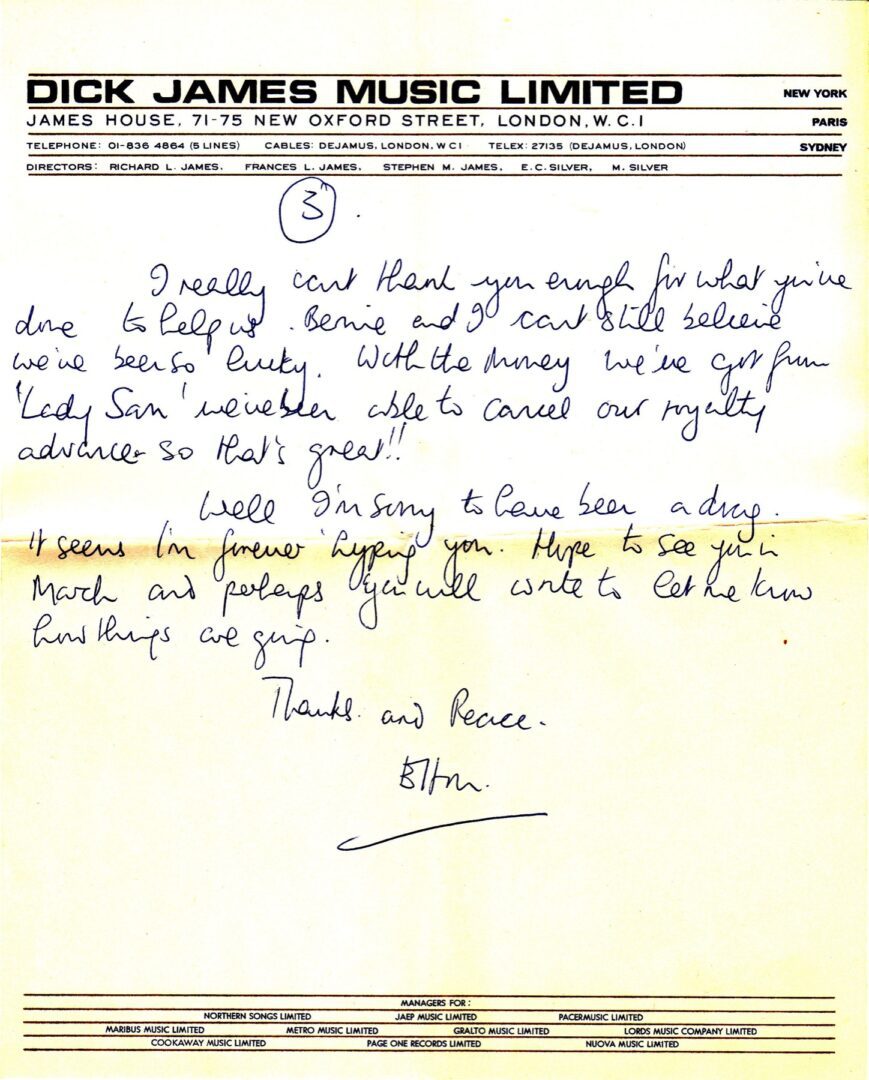 DICK JAMES MUSIC LIMITED
NEW YORK
JAMES HOUSE, 71-75 NEW OXFORD STREET, LONDON, W.C.1
PARIS
TELEPHONE: 01-836 4864 (5 LINES) CABLES: DEJAMUS, LONDON, W C 1 TELEX: 27135 (DEJAMUS, LONDON)
SYDNEY
DIRECTORS: RICHARD L. JAMES, FRANCES L. JAMES, STEPHEN M. JAMES, E.C. SILVER, M. SILVER
3.
I really can't thank you enough for what you've
done to help us. Bernie and I can't still believe
we've been so lucky. With the money we've got from
'Lady Sam' we've been able to cancel our royalty
advance - so that's great!!
Well I'm sorry to have been a drag.
It seems I'm forever 'hyping' you. Hope to see you in
March and perhaps you will write to let me know
how things are going.
Thanks. and Peace.
Elton.
MANAGERS FOR:
NORTHERN SONGS LIMITED JAEP MUSIC LIMITED PACERMUSIC LIMITED
MARIBUS MUSIC LIMITED METRO MUSIC LIMITED GRALTO MUSIC LIMITED LORDS MUSIC COMPANY LIMITED
COOKAWAY MUSIC LIMITED PAGE ONE RECORDS LIMITED NUOVA MUSIC LIMITED